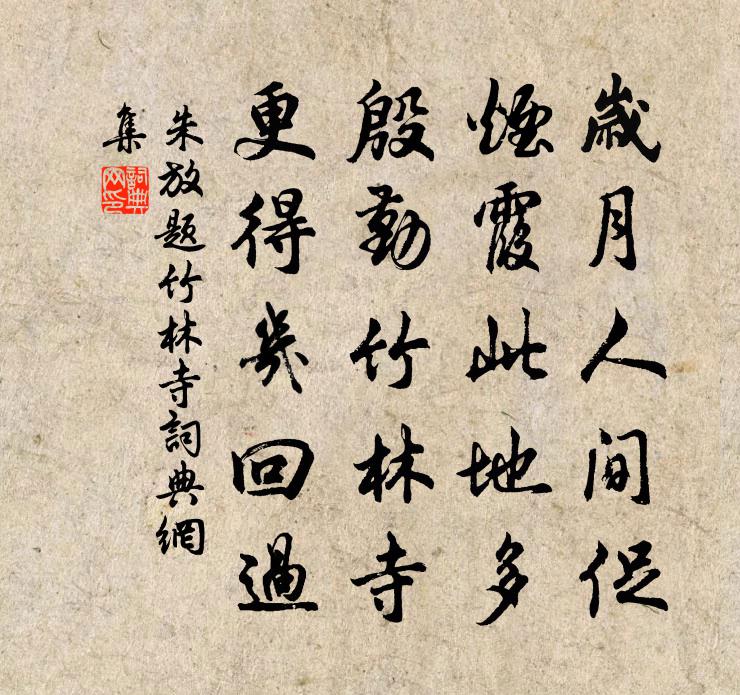 歲月人間促
煙霞此地多
殷勤竹林寺
更得幾回過
朱放題竹林寺詞典網
集
詞典
网印